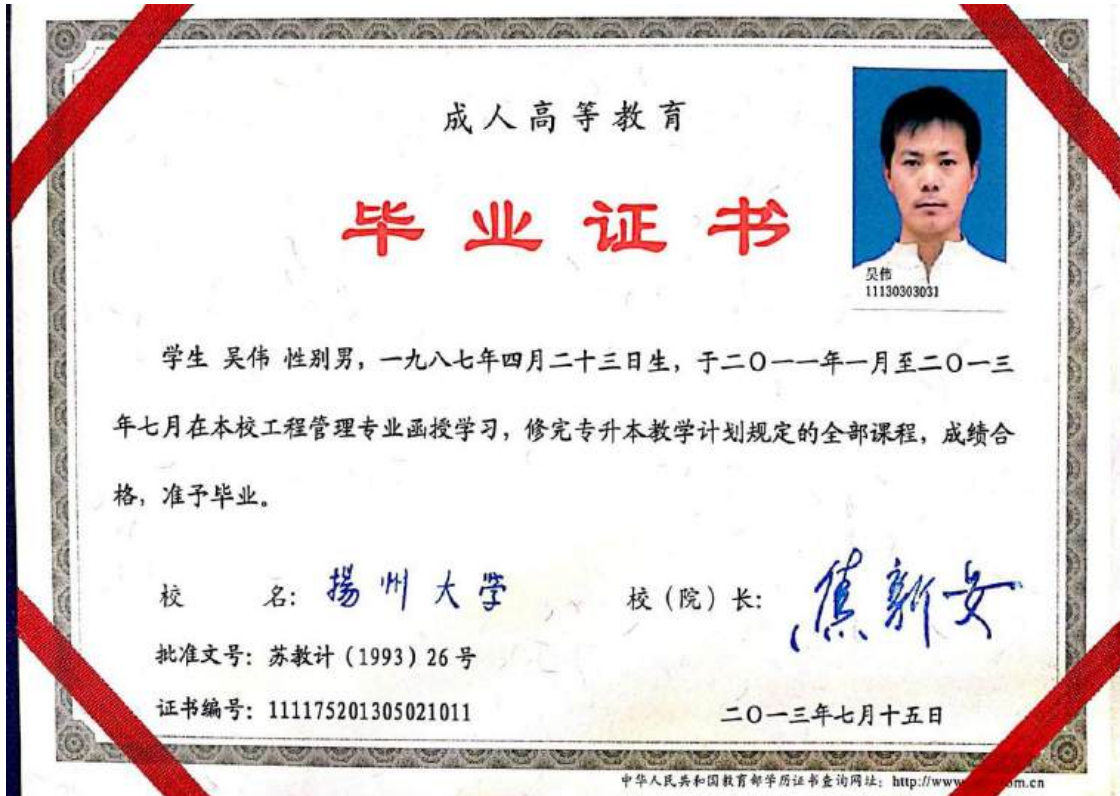 成人高等教育
毕业证书
吴伟
11130303031
学生 吴伟 性别男，一九八七年四月二十三日生，于二〇一一年一月至二〇一三
年七月在本校工程管理专业函授学习，修完专升本教学计划规定的全部课程，成绩合
格，准予毕业。
校 名：揚州大学
校（院）长：焦新安
批准文号：苏教计（1993）26号
证书编号：111175201305021011
二〇一三年七月十五日
中华人民共和国教育部学历证书查询网址：http://www. om.cn